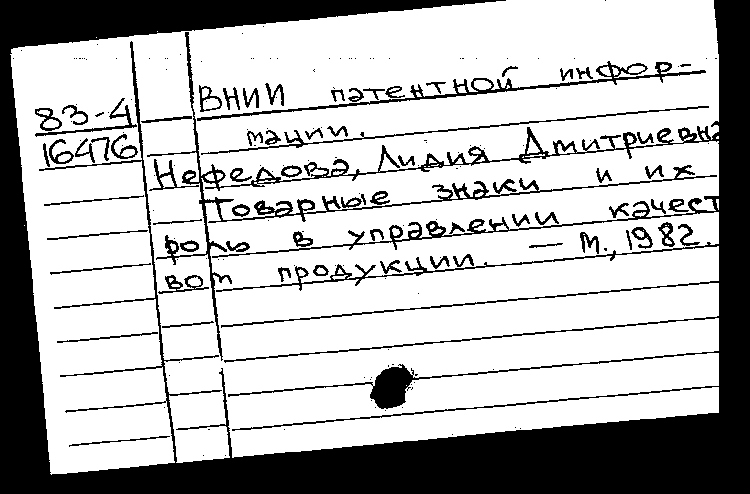 83-4
16476
ВНИИ патентной инфор-
мации.
Нефедова, Лидия Дмитриевна
Товарные знаки и их
роль в управлении качест
вом продукции. — М., 1982.